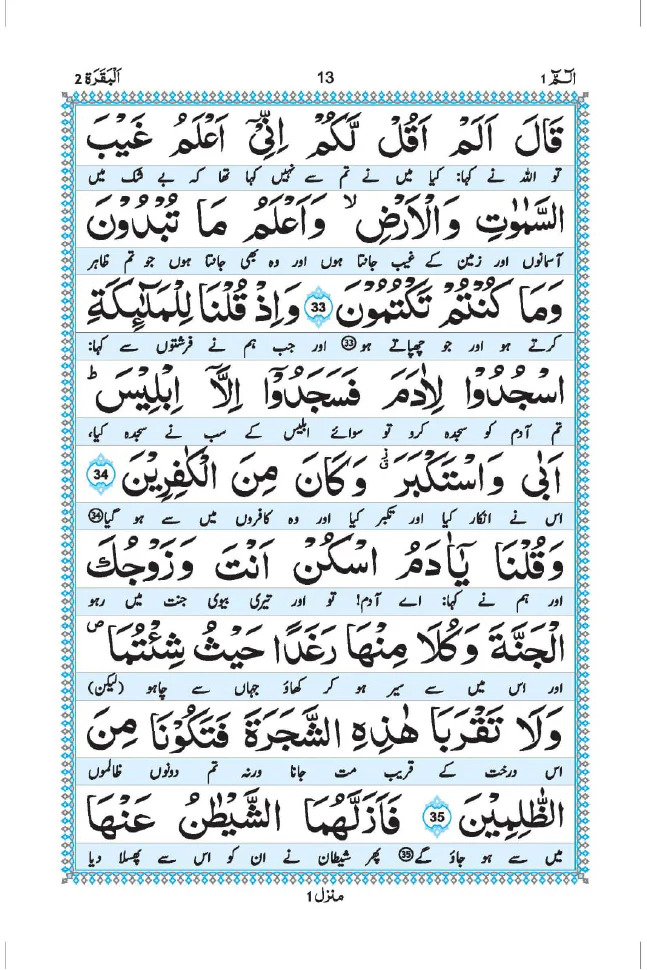 الٓمّٓ 1 13 اَلْبَقَرَة 2
قَالَ اَلَمْ اَقُلْ لَّكُمْ اِنِّيْۤ اَعْلَمُ غَيْبَ
تو اللہ نے کہا: کیا میں نے تم سے نہیں کہا تھا کہ بے شک میں
السَّمٰوٰتِ وَالْاَرْضِ ۙ وَاَعْلَمُ مَا تُبْدُوْنَ
آسمانوں اور زمین کے غیب جانتا ہوں اور وہ بھی جانتا ہوں جو تم ظاہر
وَمَا كُنْتُمْ تَكْتُمُوْنَ 33 وَاِذْ قُلْنَا لِلْمَلٰٓئِكَةِ
کرتے ہو اور جو چھپاتے ہو 33 اور جب ہم نے فرشتوں سے کہا:
اسْجُدُوْا لِاٰدَمَ فَسَجَدُوْۤا اِلَّاۤ اِبْلِيْسَ ؕ
تم آدم کو سجدہ کرو تو سوائے ابلیس کے سب نے سجدہ کیا،
اَبٰى وَاسْتَكْبَرَ ۫ۗ وَكَانَ مِنَ الْكٰفِرِيْنَ 34
اس نے انکار کیا اور تکبر کیا اور وہ کافروں میں سے ہو گیا 34
وَقُلْنَا يٰۤاٰدَمُ اسْكُنْ اَنْتَ وَزَوْجُكَ
اور ہم نے کہا: اے آدم! تو اور تیری بیوی جنت میں رہو
الْجَنَّةَ وَكُلَا مِنْهَا رَغَدًا حَيْثُ شِئْتُمَا ۪
اور اس میں سے سیر ہو کر کھاؤ جہاں سے چاہو (لیکن)
وَلَا تَقْرَبَا هٰذِهِ الشَّجَرَةَ فَتَكُوْنَا مِنَ
اس درخت کے قریب مت جانا ورنہ تم دونوں ظالموں
الظّٰلِمِيْنَ 35 فَاَزَلَّهُمَا الشَّيْطٰنُ عَنْهَا
میں سے ہو جاؤ گے 35 پھر شیطان نے ان کو اس سے پھسلا دیا
منزل 1